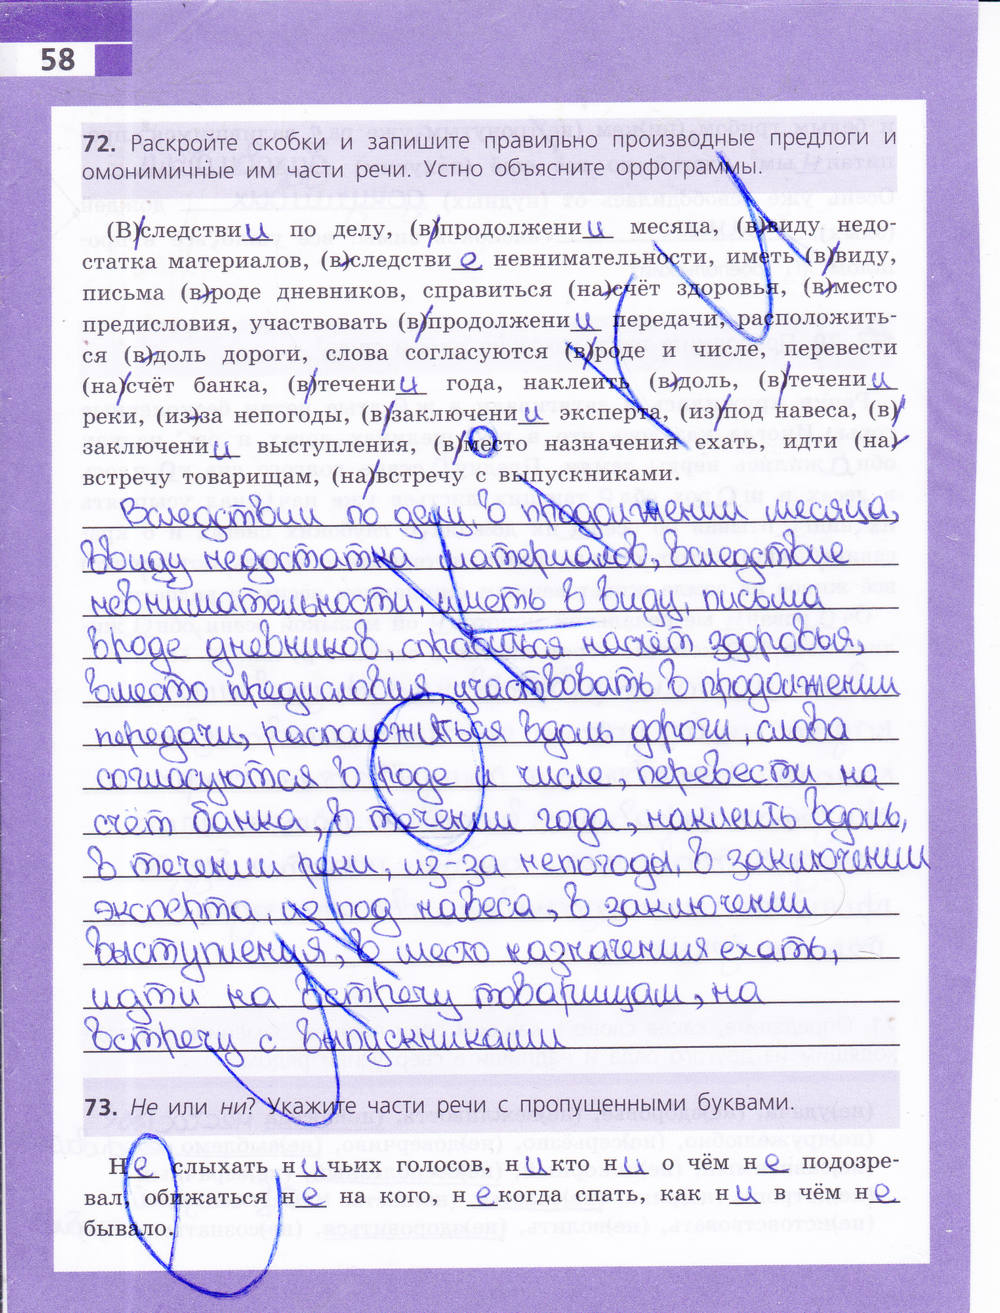 58
72. Раскройте скобки и запишите правильно производные предлоги и
омонимичные им части речи. Устно объясните орфограммы.
(В)следствии по делу, (в)продолжении месяца, (в)виду недо-
статка материалов, (в)следствие невнимательности, иметь (в)виду,
письма (в)роде дневников, справиться (на)счёт здоровья, (в)место
предисловия, участвовать (в)продолжении передачи, расположить-
ся (в)доль дороги, слова согласуются (в)роде и числе, перевести
(на)счёт банка, (в)течении года, наклеить (в)доль, (в)течении
реки, (из)за непогоды, (в)заключении эксперта, (из)под навеса, (в)
заключении выступления, (в)место назначения ехать, идти (на)
встречу товарищам, (на)встречу с выпускниками.
Вследствии по делу, в продолжении месяца,
ввиду недостатка материалов, вследствие
невнимательности, иметь в виду, письма
вроде дневников, справиться насчёт здоровья,
вместо предисловия, участвовать в продолжении
передачи, расположиться вдоль дороги, слова
согласуются в роде и числе, перевести на
счёт банка, в течении года, наклеить вдоль,
в течении реки, из-за непогоды, в заключении
эксперта, из под навеса, в заключении
выступления, в место назначения ехать,
идти на встречу товарищам, на
встречу с выпускниками
73. Не или ни? Укажите части речи с пропущенными буквами.
Не слыхать ничьих голосов, никто ни о чём не подозре-
вал, обижаться не на кого, некогда спать, как ни в чём не
бывало.